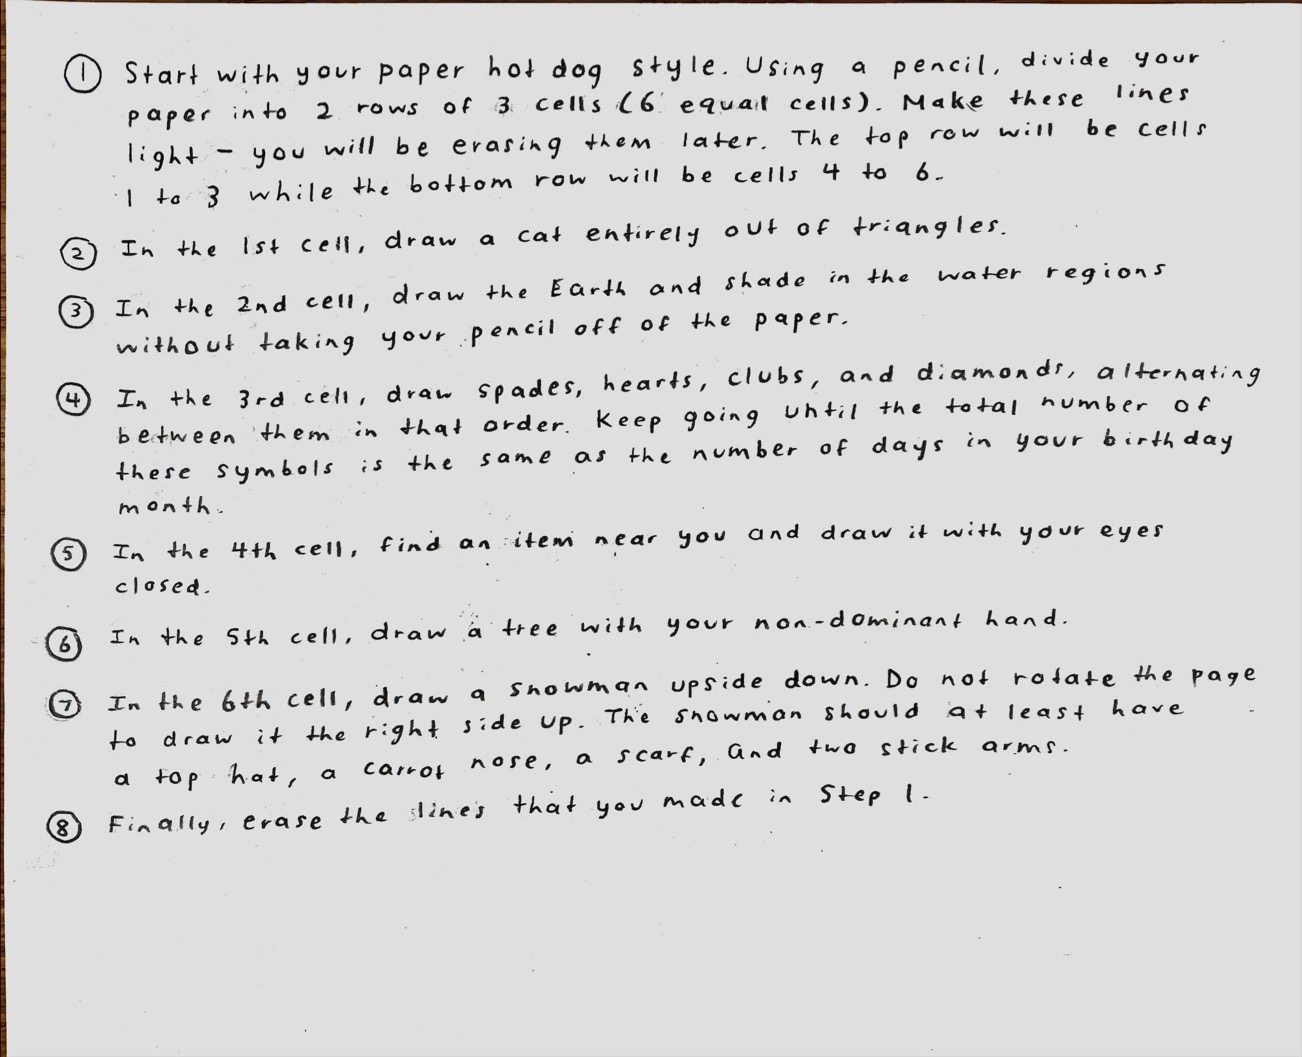 ① Start with your paper hot dog style. Using a pencil, divide your
paper into 2 rows of 3 cells (6 equal cells). Make these lines
light - you will be erasing them later. The top row will be cells
1 to 3 while the bottom row will be cells 4 to 6.
② In the 1st cell, draw a cat entirely out of triangles.
③ In the 2nd cell, draw the Earth and shade in the water regions
without taking your pencil off of the paper.
④ In the 3rd cell, draw spades, hearts, clubs, and diamonds, alternating
between them in that order. Keep going until the total number of
these symbols is the same as the number of days in your birthday
month.
⑤ In the 4th cell, find an item near you and draw it with your eyes
closed.
⑥ In the 5th cell, draw a tree with your non-dominant hand.
⑦ In the 6th cell, draw a snowman upside down. Do not rotate the page
to draw it the right side up. The snowman should at least have
a top hat, a carrot nose, a scarf, and two stick arms.
⑧ Finally, erase the lines that you made in Step 1.